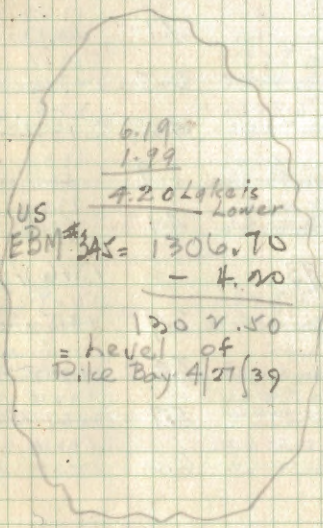 6.19
1.99
4.20 Lake is
Lower
US
EBM #345 = 1306.70
- 4.20
1302.50
= Level of
Pike Bay 4/27/39